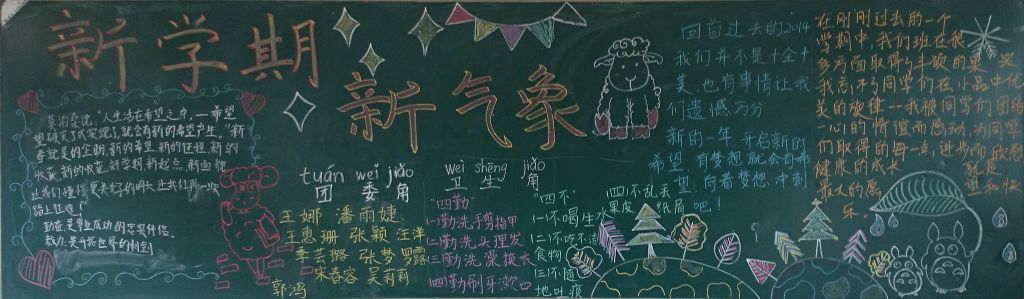 新学期
新气象
莫泊桑说："人生活在希望之中,一希望
破灭了或实现了,就会有新的希望产生。"新
春就是的企盼,新的希望,新的征程,新的
收获,新的收获,新学期,新起点,新面貌
让我们憧憬更美好的明天,让我们再一次
踏上征途!
勤奋是事业成功的忠实伴侣。
tuán wěi jiǎo
团 委 角
王娜 潘雨婕
王惠珊 张颖 汪洋
李芸璐 张梦露
宋春容 吴莉莉
郭鸿
wèi shēng jiǎo
卫 生 角
"四勤"
(一)勤洗手剪指甲
(二)勤洗头理发
(三)勤洗澡换衣
(四)勤刷牙漱口
"四不"
(一)不喝生水
(二)不吃不洁
食物
(三)不随
地吐痰
(四)不乱丢
果皮 纸屑
回首过去的2014
我们并不是十全十
美,也有事情让我
们遗憾万分
新的一年 开启新的
希望,有梦想就会有希
望,向着梦想,冲刺
吧!
在刚刚过去的一个
学期中,我们班在很
多方面取得了丰硕的果实
我高不的同学们在小品中优
美的旋律--我被同学们团结
一心的情谊而感动,为同学
们取得的每一点进步而欣慰
健康的成长 就是
最大的愿望和快
乐。